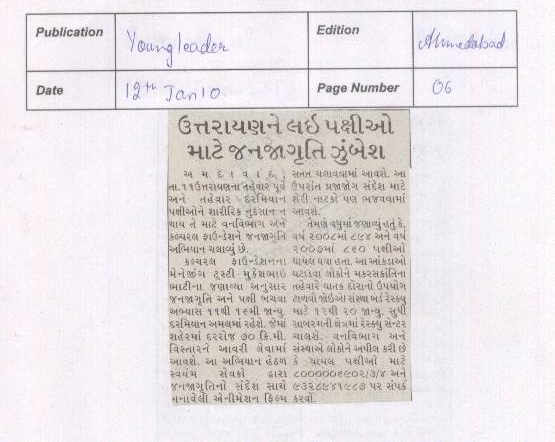 Publication Youngleader Edition Ahmedabad
Date 12th Jan 10 Page Number 06
ઉત્તરાયણને લઇ પક્ષીઓ
માટે જનજાગૃતિ ઝુંબેશ
અમદાવાદ,
તા.૧૧ઉત્તરાયણના તહેવાર પૂર્વે
અને તહેવાર દરમિયાન
પક્ષીઓને શારીરિક નુકસાન ન
થાય તે માટે વનવિભાગ અને
કલ્ચરલ ફાઉન્ડેશને જનજાગૃતિ
અભિયાન ચલાવ્યું છે.
કલ્ચરલ ફાઉન્ડેશનના
મેનેજીંગ ટ્રસ્ટી મુકેશભાઇ
ભાટીના જણાવ્યા અનુસાર
જનજાગૃતિ અને પક્ષી બચાવા
અભ્યાસ ૧૧થી ૧૬મી જાન્યુ.
દરમિયાન અમલમાં રહેશે. જેમાં
શહેરમાં દરરોજ ૭૦ કિ.મી.
વિસ્તારને આવરી લેવામાં
આવશે. આ અભિયાન હેઠળ
સ્વયંમ સેવકો દ્વારા
જનજાગૃતિનો સંદેશ સાથે
બનાવેલી એનીમેશન ફિલ્મ
સતત ચલાવવામાં આવશે. આ
ઉપરાંત પ્રજાજોગ સંદેશ માટે
શેરી નાટકો પણ ભજવવામાં
આવશે.
તેમણે વધુમાં જણાવ્યું હતું કે,
વર્ષ ૨૦૦૮માં ૮૯૪ અને વર્ષ
૨૦૦૭માં ૮૬૦ પક્ષીઓ
ઘાયલ થયા હતા. આ આંકડાઓ
ઘટાડવા લોકોને મકરસંક્રાંતિના
તહેવારે ઘાતક દોરાનો ઉપયોગ
ટાળવો જોઇએ સંસ્થા બર્ડ રેસ્ક્યુ
માટે ૧૨થી ૨૦ જાન્યુ. સુધી
સાબરમતી ક્ષેત્રમાં રેસ્ક્યુ સેન્ટર
ચાલશે. વનવિભાગ અને
સંસ્થાએ લોકોને અપીલ કરી છે
કે ઘાયલ પક્ષીઓ માટે
૮૦૦૦૦૦૬૯૦૨/૩/૪ અને
૯૩૨૮૯૪૧૯૮૭ પર સંપર્ક
કરવો.